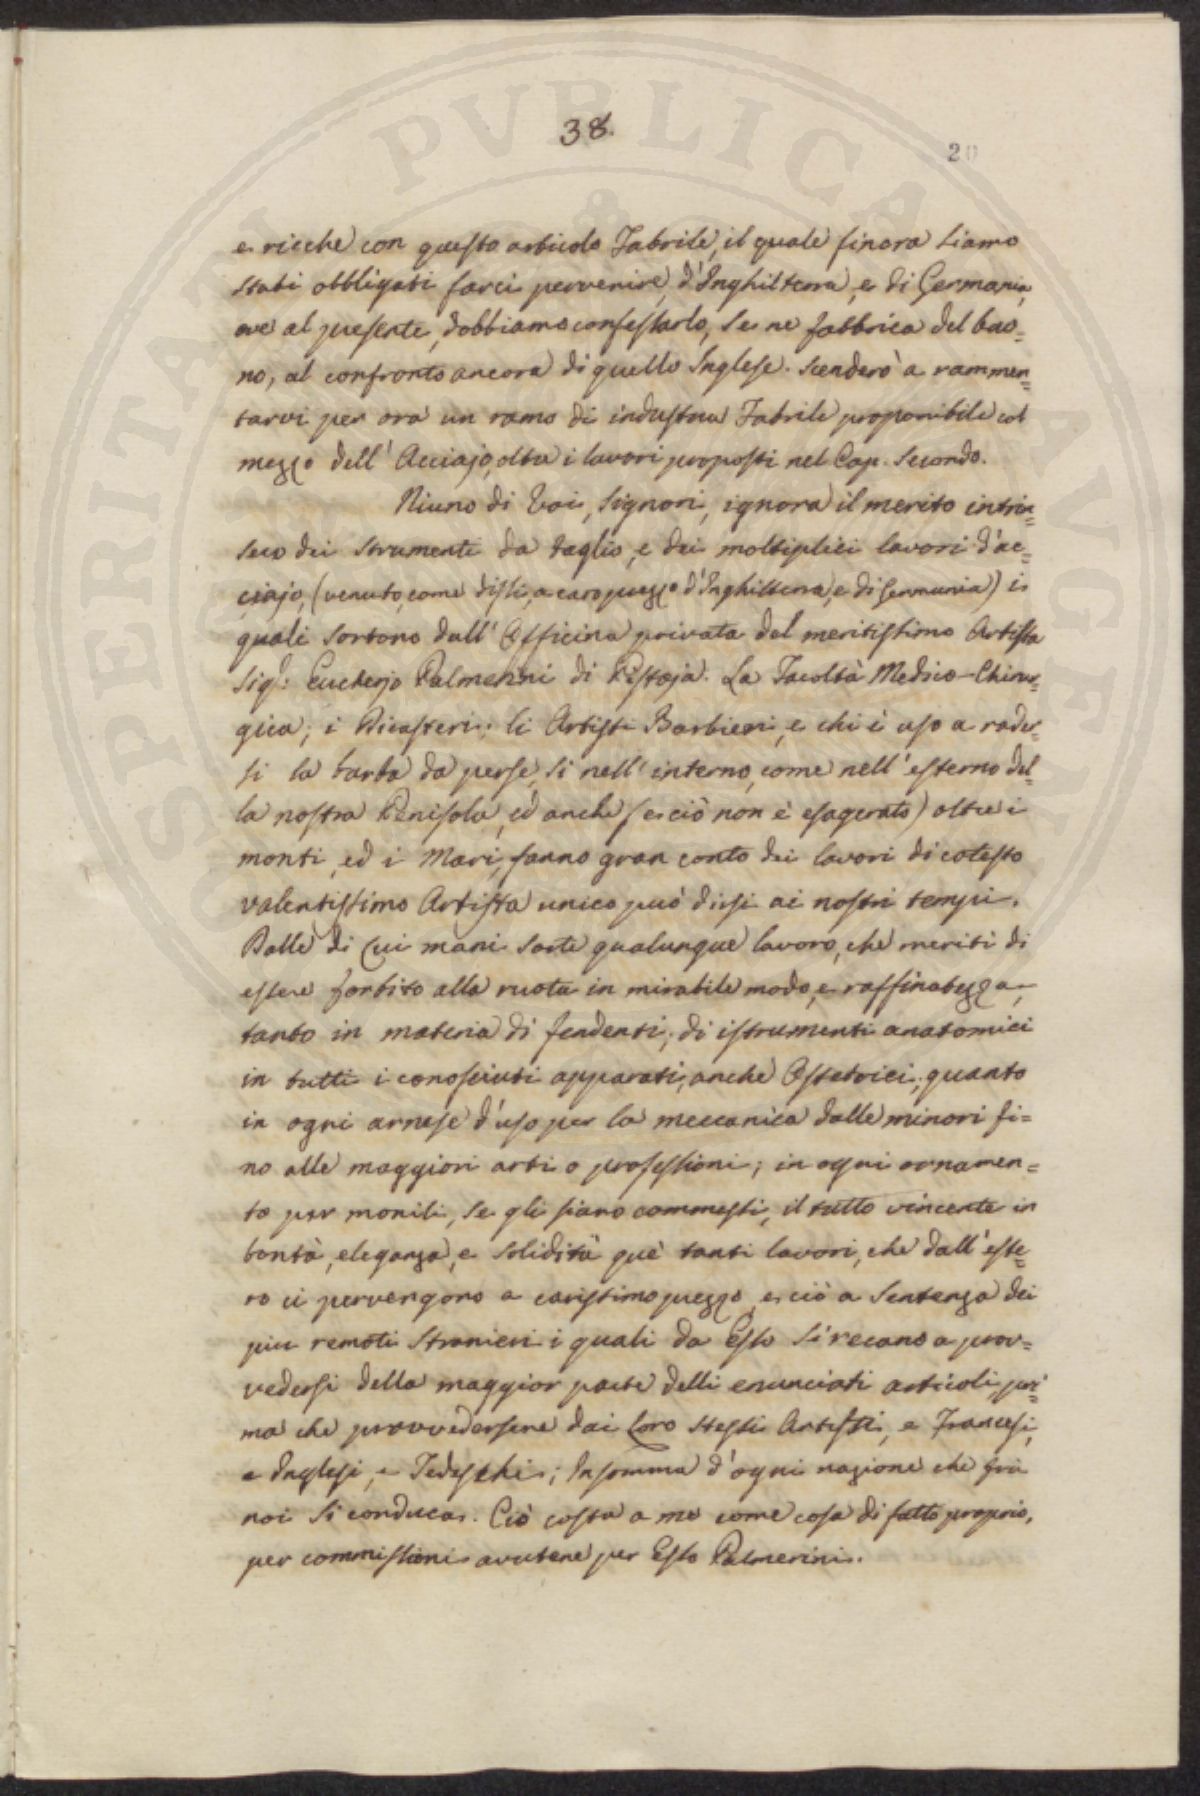 38.
20
e ricche con questo articolo Fabrile, il quale finora siamo
stati obbligati farci pervenire, d'Inghilterra, e di Germania,
ove al presente, dobbiamo confessarlo, se ne fabbrica del buo=
no, al confronto ancora di quello Inglese. Scenderò a rammen=
tarvi per ora un ramo di industria Fabrile proponibile col
mezzo dell' Acciajo, oltre i lavori proposti nel Cap. Secondo.
Niuno di Voi, Signori, ignora il merito intrin=
seco dei strumenti da taglio, e dei moltiplici lavori d'ac=
ciajo, (venuto, come dissi, a caro prezzo d'Inghilterra, e di Germania) i
quali sortono dall' Officina privata del meritissimo Artista
Sig.r Eucherjo Palmerini di Pistoja. La Facoltà Medico-Chirur=
gica; i Dicasteri; li Artisti Barbieri, e chi è uso a rader=
si la barba da perse, si nell' interno, come nell' esterno del=
la nostra Penisola, ed anche (e ciò non è esagerato) oltre i
monti, ed i Mari, fanno gran conto dei lavori di cotesto
valentissimo Artista unico può dirsi ai nostri tempi.
Dalle di Cui mani sorte qualunque lavoro, che meriti di
essere forbito alla ruota in mirabile modo, e raffinatezza,
tanto in materia di fendenti; di istrumenti anatomici
in tutti i conosciuti apparati, anche Ostetrici; quanto
in ogni arnese d'uso per la meccanica dalle minori fi=
no alle maggiori arti o professioni; in ogni ornamen=
to per monili, se gli siano commessi, il tutto vincente in
bontà, eleganza, e solidità què tanti lavori, che dall' este=
ro ci pervengono a carissimo prezzo, e ciò a Sentenza dei
piu remoti Stranieri i quali da Esso si recano a prov=
vedersi della maggior parte delli enunciati articoli, pri=
ma che provvedersene dai Loro stessi Artisti, e Francesi,
e Inglesi, e Tedeschi; Insomma d'ogni nazione che frà
noi si conduca. Ciò costa a me come cosa di fatto proprio,
per commissioni avutene per Esso Palmerini.
PVBLICAE
SPERITATI
AVGEN